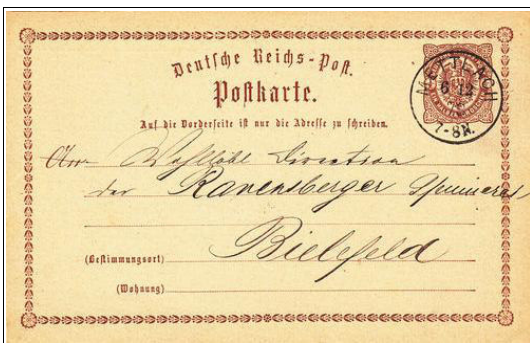 Deutsche Reichs-Post.
Postkarte.
METTLACH
6 12
7-8N.
Auf die Vorderseite ist nur die Adresse zu schreiben.
An Wohllöbl Direction
der Ravensberger Spinnerei
(Bestimmungsort) Bielefeld
(Wohnung)